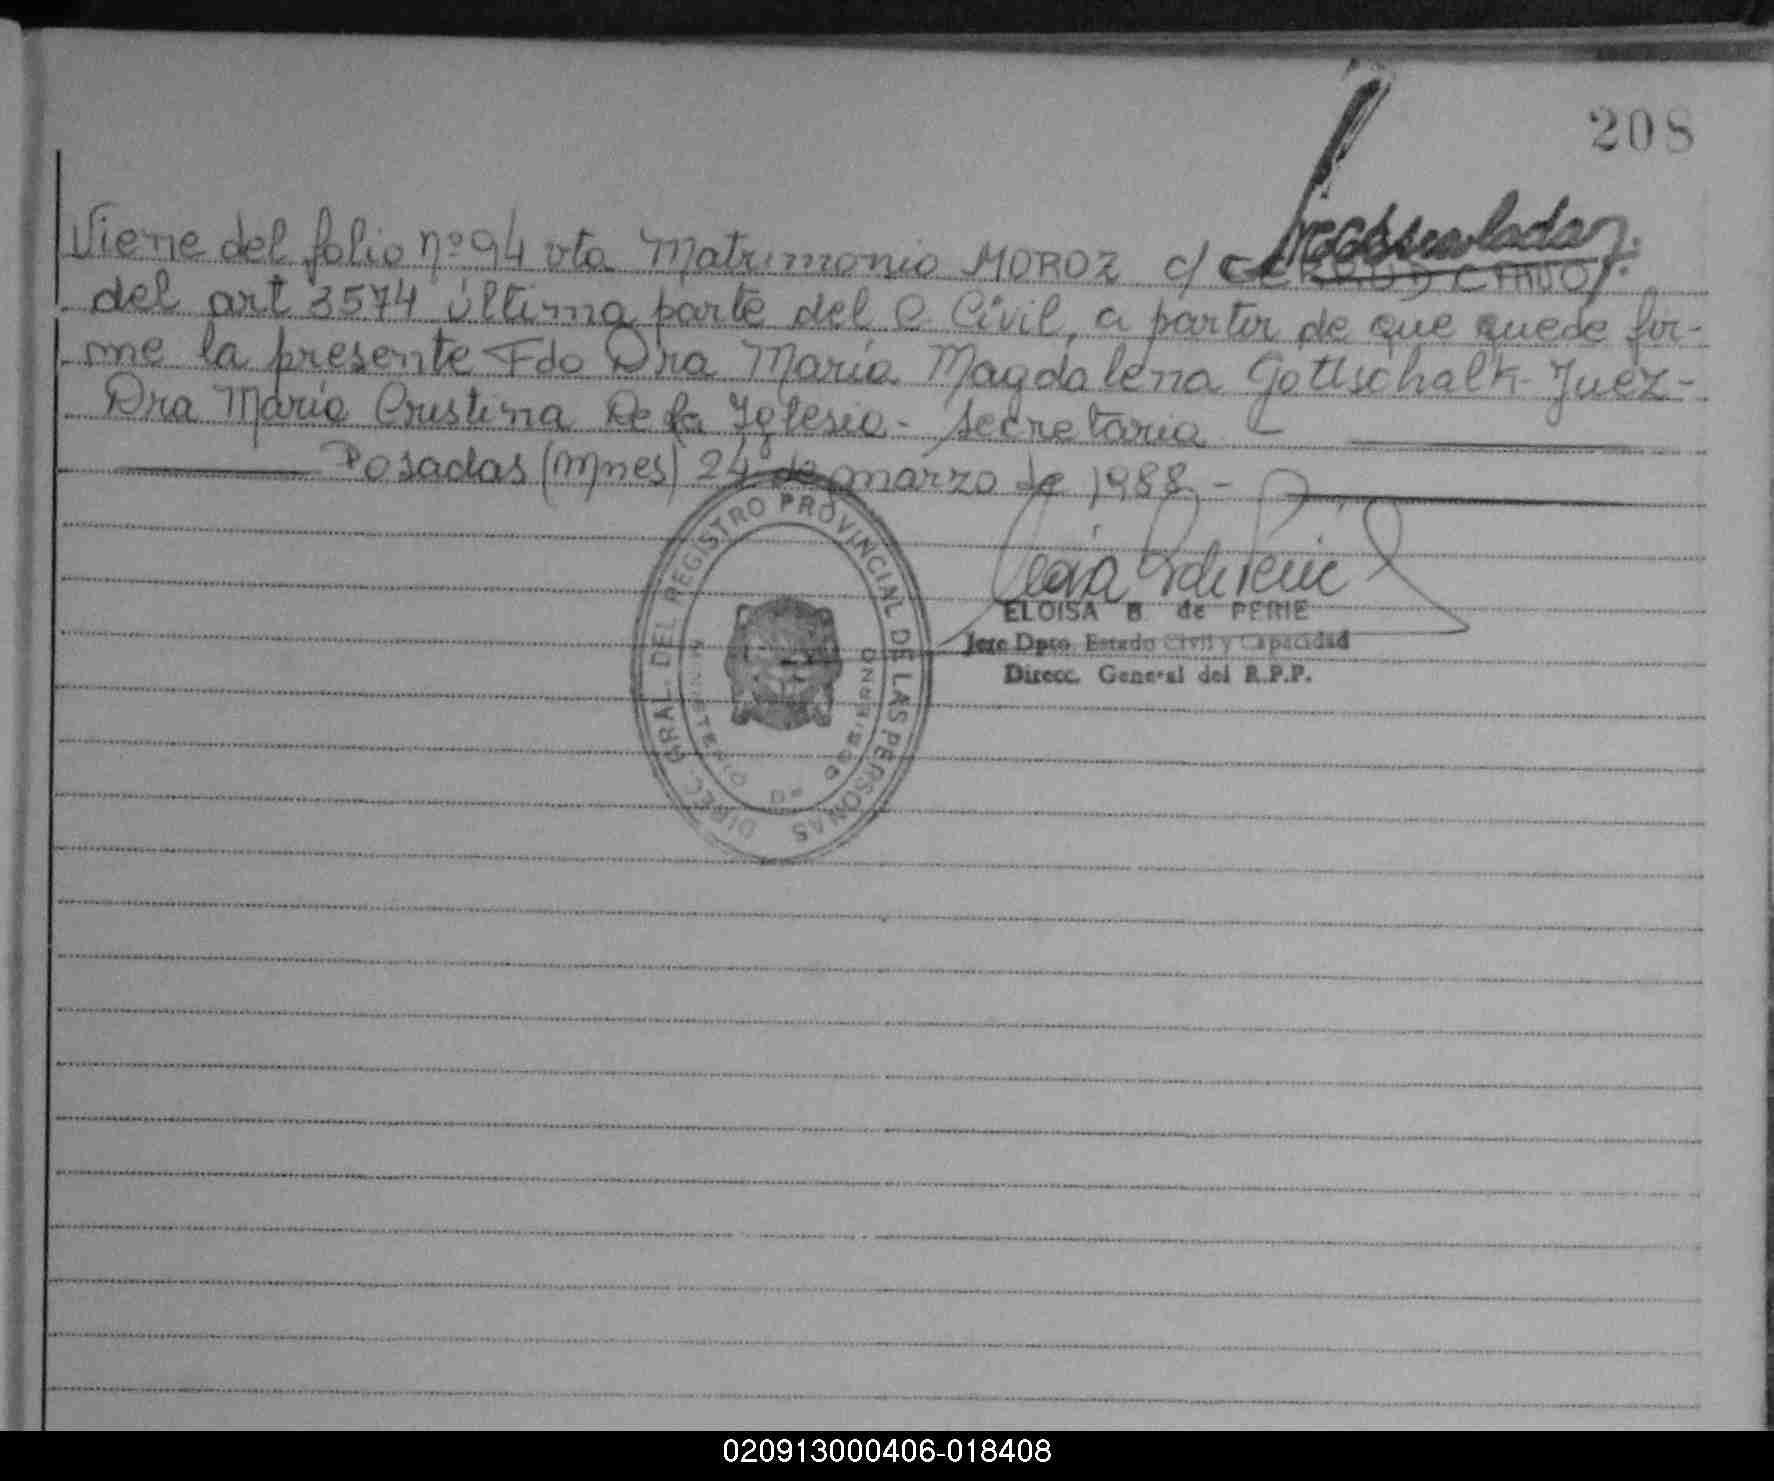 208
Viene del folio nº 94 vta Matrimonio MOROZ c/
del art 3574 última parte del C. Civil, a partir de que quede fir-
me la presente Fdo Dra María Magdalena Gottschalk - Juez -
Dra María Cristina De la Iglesia - Secretaria
Posadas (Mnes) 24 de marzo de 1988 -
DIREC. GRAL. DEL REGISTRO PROVINCIAL DE LAS PERSONAS
MINISTERIO DE GOBIERNO
ELOISA B. de PERIE
Jefe Dpto. Estado Civil y Capacidad
Direcc. General del R.P.P.
020913000406-018408